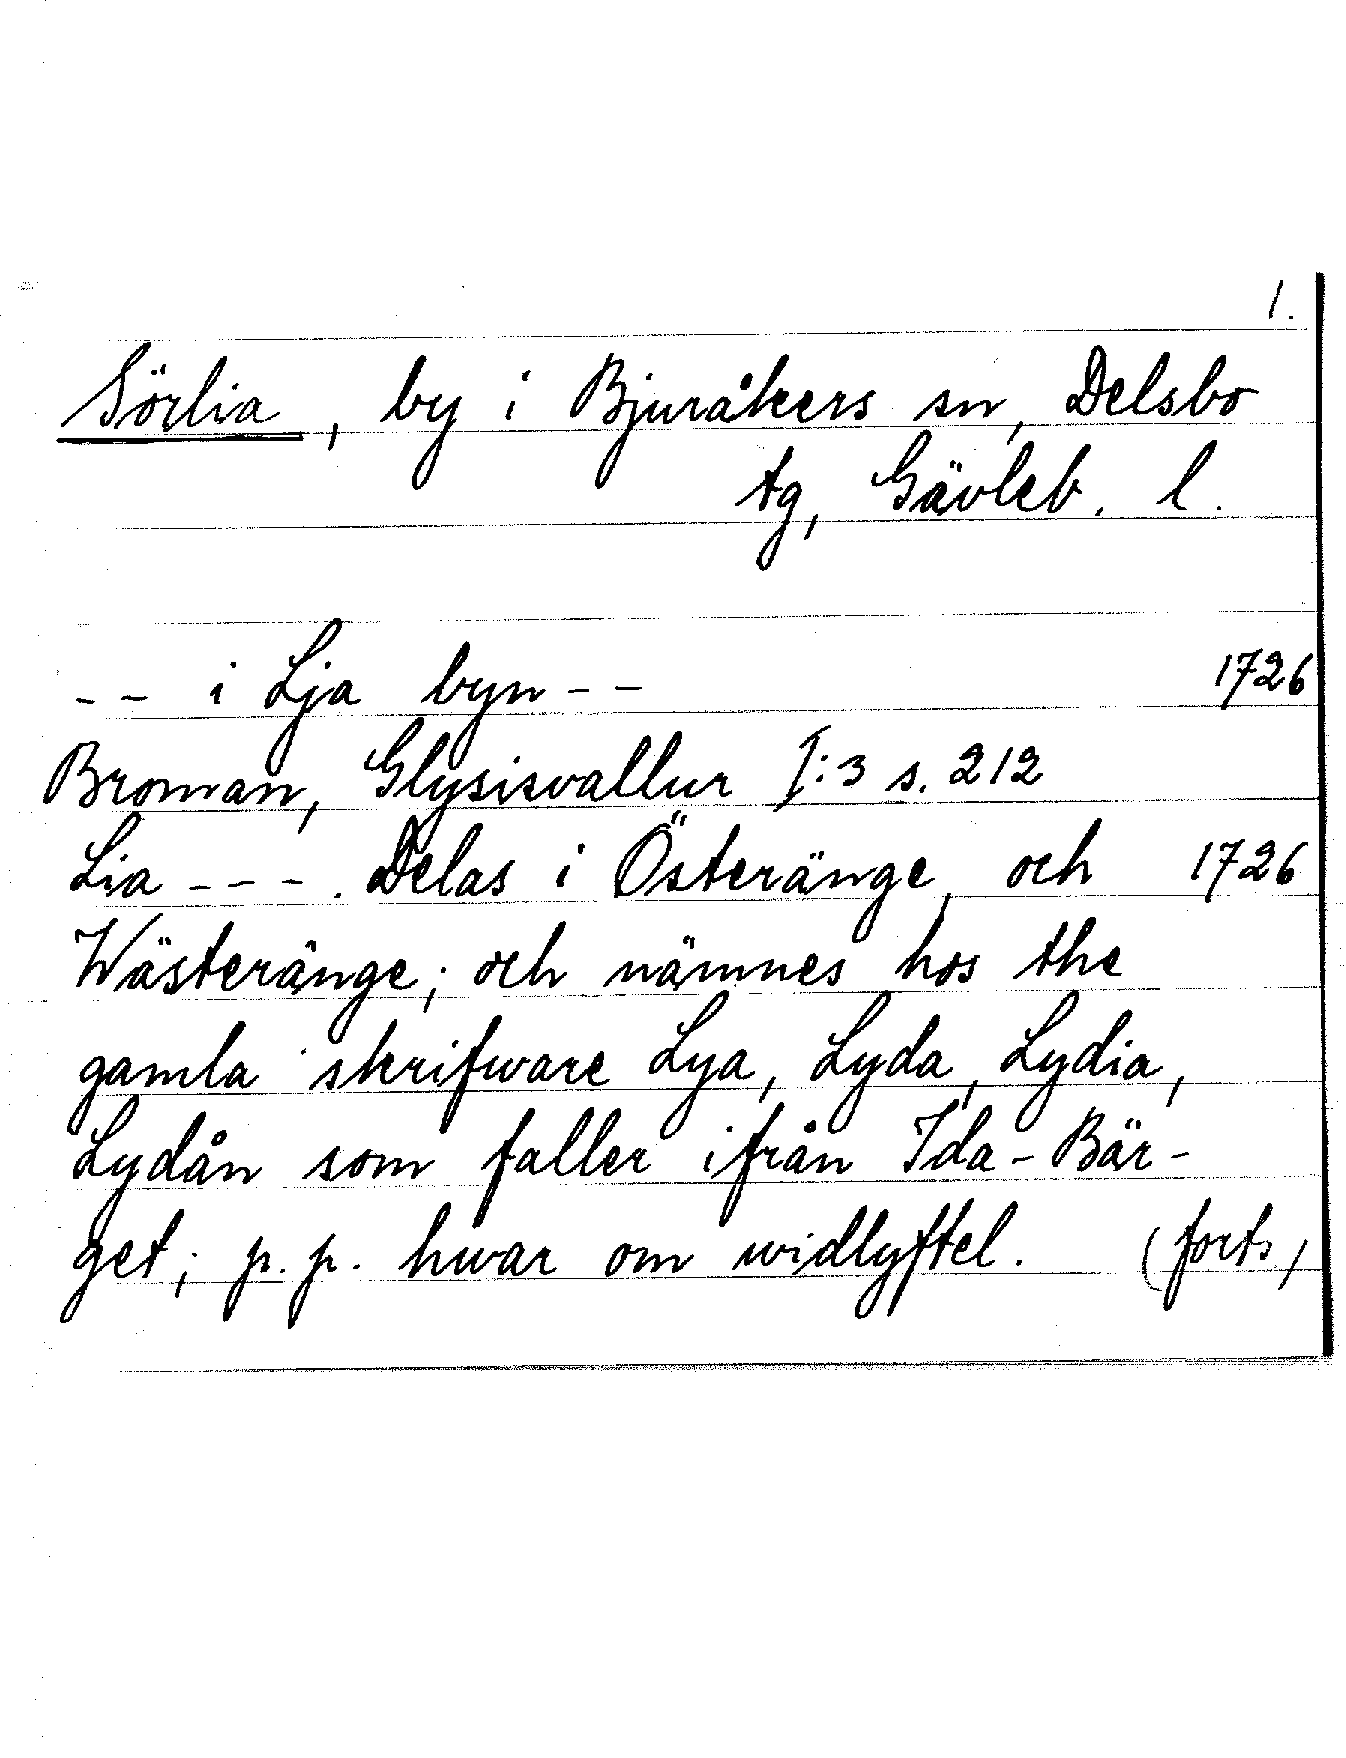 1.
Sörlia, by i Bjuråkers sn, Delsbo
tg, Gävleb. l.
-- i Lja byn -- 1726
Broman, Glysisvallur I:3 s. 212
Lia ---. Delas i Österänge, och 1726
Wästeränge; och nämnes hos the
gamla skrifware Lya, Lyda, Lydia,
Lydån som faller ifrån Ida-Bär-
get; p.p. hwar om widlyftel. (forts)